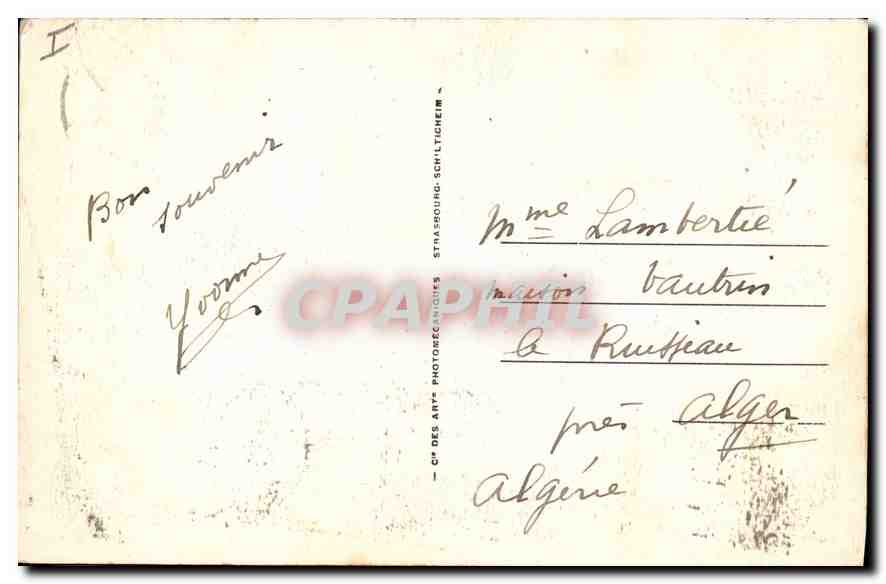 I
Bon
souvenir
Yvonne
— Cie DES ARTs PHOTOMÉCANIQUES STRASBOURG-SCHILTIGHEIM —
CPAPHIL
Mme Lambertié
maison Vautrin
le Ruisseau
près Alger
Algérie